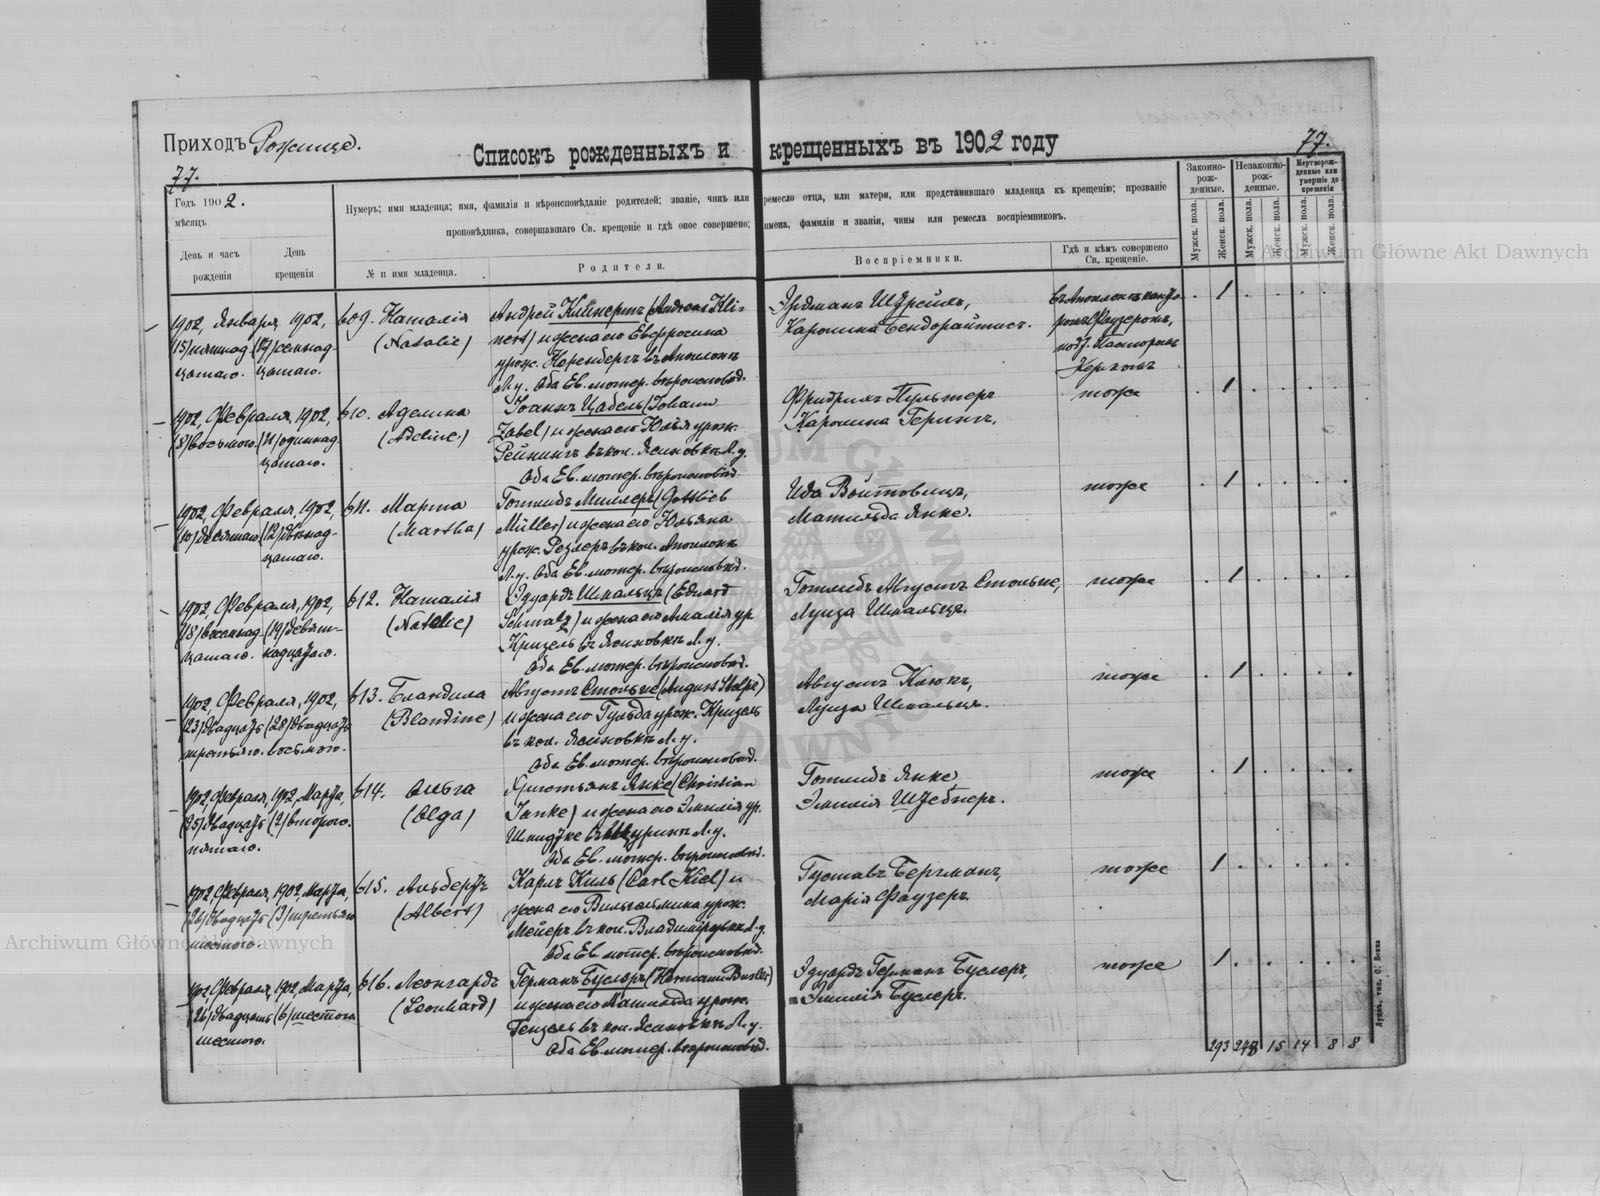 Приходъ Рожище.
Списокъ рожденныхъ и крещенныхъ въ 1902 году
77.
77.
Годъ 1902.
мѣсяцъ
Нумеръ; имя младенца; имя, фамилія и вѣроисповѣданіе родителей; званіе, чинъ или ремесло отца, или матери, или представившаго младенца къ крещенію; прозваніе
проповѣдника, совершавшаго Св. крещеніе и гдѣ оное совершено; имена, фамиліи и званія, чины или ремесла воспріемниковъ.
День и часъ рожденія
День крещенія
№ и имя младенца.
Родители.
Воспріемники.
Гдѣ и кѣмъ совершено Св. крещеніе.
Законно-рож-денные.
Незаконно-рож-денные.
Мертворож-денные или умершіе до крещенія
Мужск. пола.
Женск. пола.
Мужск. пола.
Женск. пола.
Мужск. пола.
Женск. пола.
1902, Января,
(15) пятнад-
цатаго.
1902,
(17) семнад-
цатаго.
609. Наталія
(Natalie)
Андрей Клинертъ (Andreas Kli-
nert) и жена его Евфросина
урож. въ Аполонк
Л.у. Оба Ев. лютер. вѣроисповѣд.
Эрдманъ Штрейхъ,
Каролина
въ Аполонкѣ канто-
ромъ Фаузеромъ,
подт. Пасторомъ
Керхомъ
1
1902, Февраля,
(8) восьмого.
1902,
(11) одиннад-
цатаго.
610. Аделина
(Adeline)
Іоаннъ Цабель (Johann
Zabel) и жена его Юлія урож.
Рейнингъ въ кол. Ясиновкѣ Л.у.
Оба Ев. лютер. вѣроисповѣд.
Фридрихъ Пультеръ
Каролина Герингъ.
тоже
1
1902, Февраля,
(10) десятаго
1902,
(12) двѣнад-
цатаго.
611. Марта
(Martha)
Готлибъ Миллеръ (Gottlieb
Müller) и жена его Юльяна
урож. Резлеръ въ кол. Аполонк
Л.у. Оба Ев. лютер. вѣроисповѣд.
Ида Войтовицъ,
Матильда Янке.
тоже
1
1902, Февраля,
(18) восемнад-
цатаго.
1902,
(19) девят-
надцатаго.
612. Наталія
(Natalie)
Эдуардъ Шмальцъ (Eduard
Schmalz) и жена его Амалія ур.
Кригель въ Ясиновкѣ Л.у.
Оба Ев. лютер. вѣроисповѣд.
Готлибъ Августъ Стольпе,
Луиза Шмальцъ.
тоже
1
1902, Февраля,
(23) двадцать
третьяго.
1902,
(28) двадцать
восьмого.
613. Бландина
(Blandine)
Августъ Стольпе (August Stolpe)
и жена его Гульда урож. Кригель
въ кол. Ясиновкѣ Л.у.
Оба Ев. лютер. вѣроисповѣд.
Августъ Клюкъ,
Луиза Шмальцъ.
тоже
1
1902, Февраля,
(25) двадцать
пятаго.
1902, Марта,
(2) второго.
614. Ольга
(Olga)
Христьянъ Янке (Christian
Janke) и жена его Эмилія ур.
Л.у.
Оба Ев. лютер. вѣроисповѣд.
Готлибъ Янке
Эмилія Штебнеръ.
тоже
1
1902, Февраля,
(26) двадцать
шестого.
1902, Марта,
(3) третьяго
615. Альбертъ
(Albert)
Карлъ Киль (Carl Kiel) и
жена его Вильгельмина урож.
Мейеръ въ кол. Владиміровкѣ Л.у.
Оба Ев. лютер. вѣроисповѣд.
Густавъ Бергманъ,
Марія Фаузеръ.
тоже
1
1902, Февраля,
(26) двадцать
шестого.
1902, Марта,
(6) шестого
616. Леонгардъ
(Leonhard)
Германъ Буслеръ (Hermann Bussler)
и жена его Матильда урож.
Гензель въ кол. Ясиновкѣ Л.у.
Оба Ев. лютер. вѣроисповѣд.
Эдуардъ Германъ Буслеръ,
Эмилія Буслеръ.
тоже
1
293 248 15 14 8 8
Archiwum Główne Akt Dawnych
Archiwum Główne Akt Dawnych